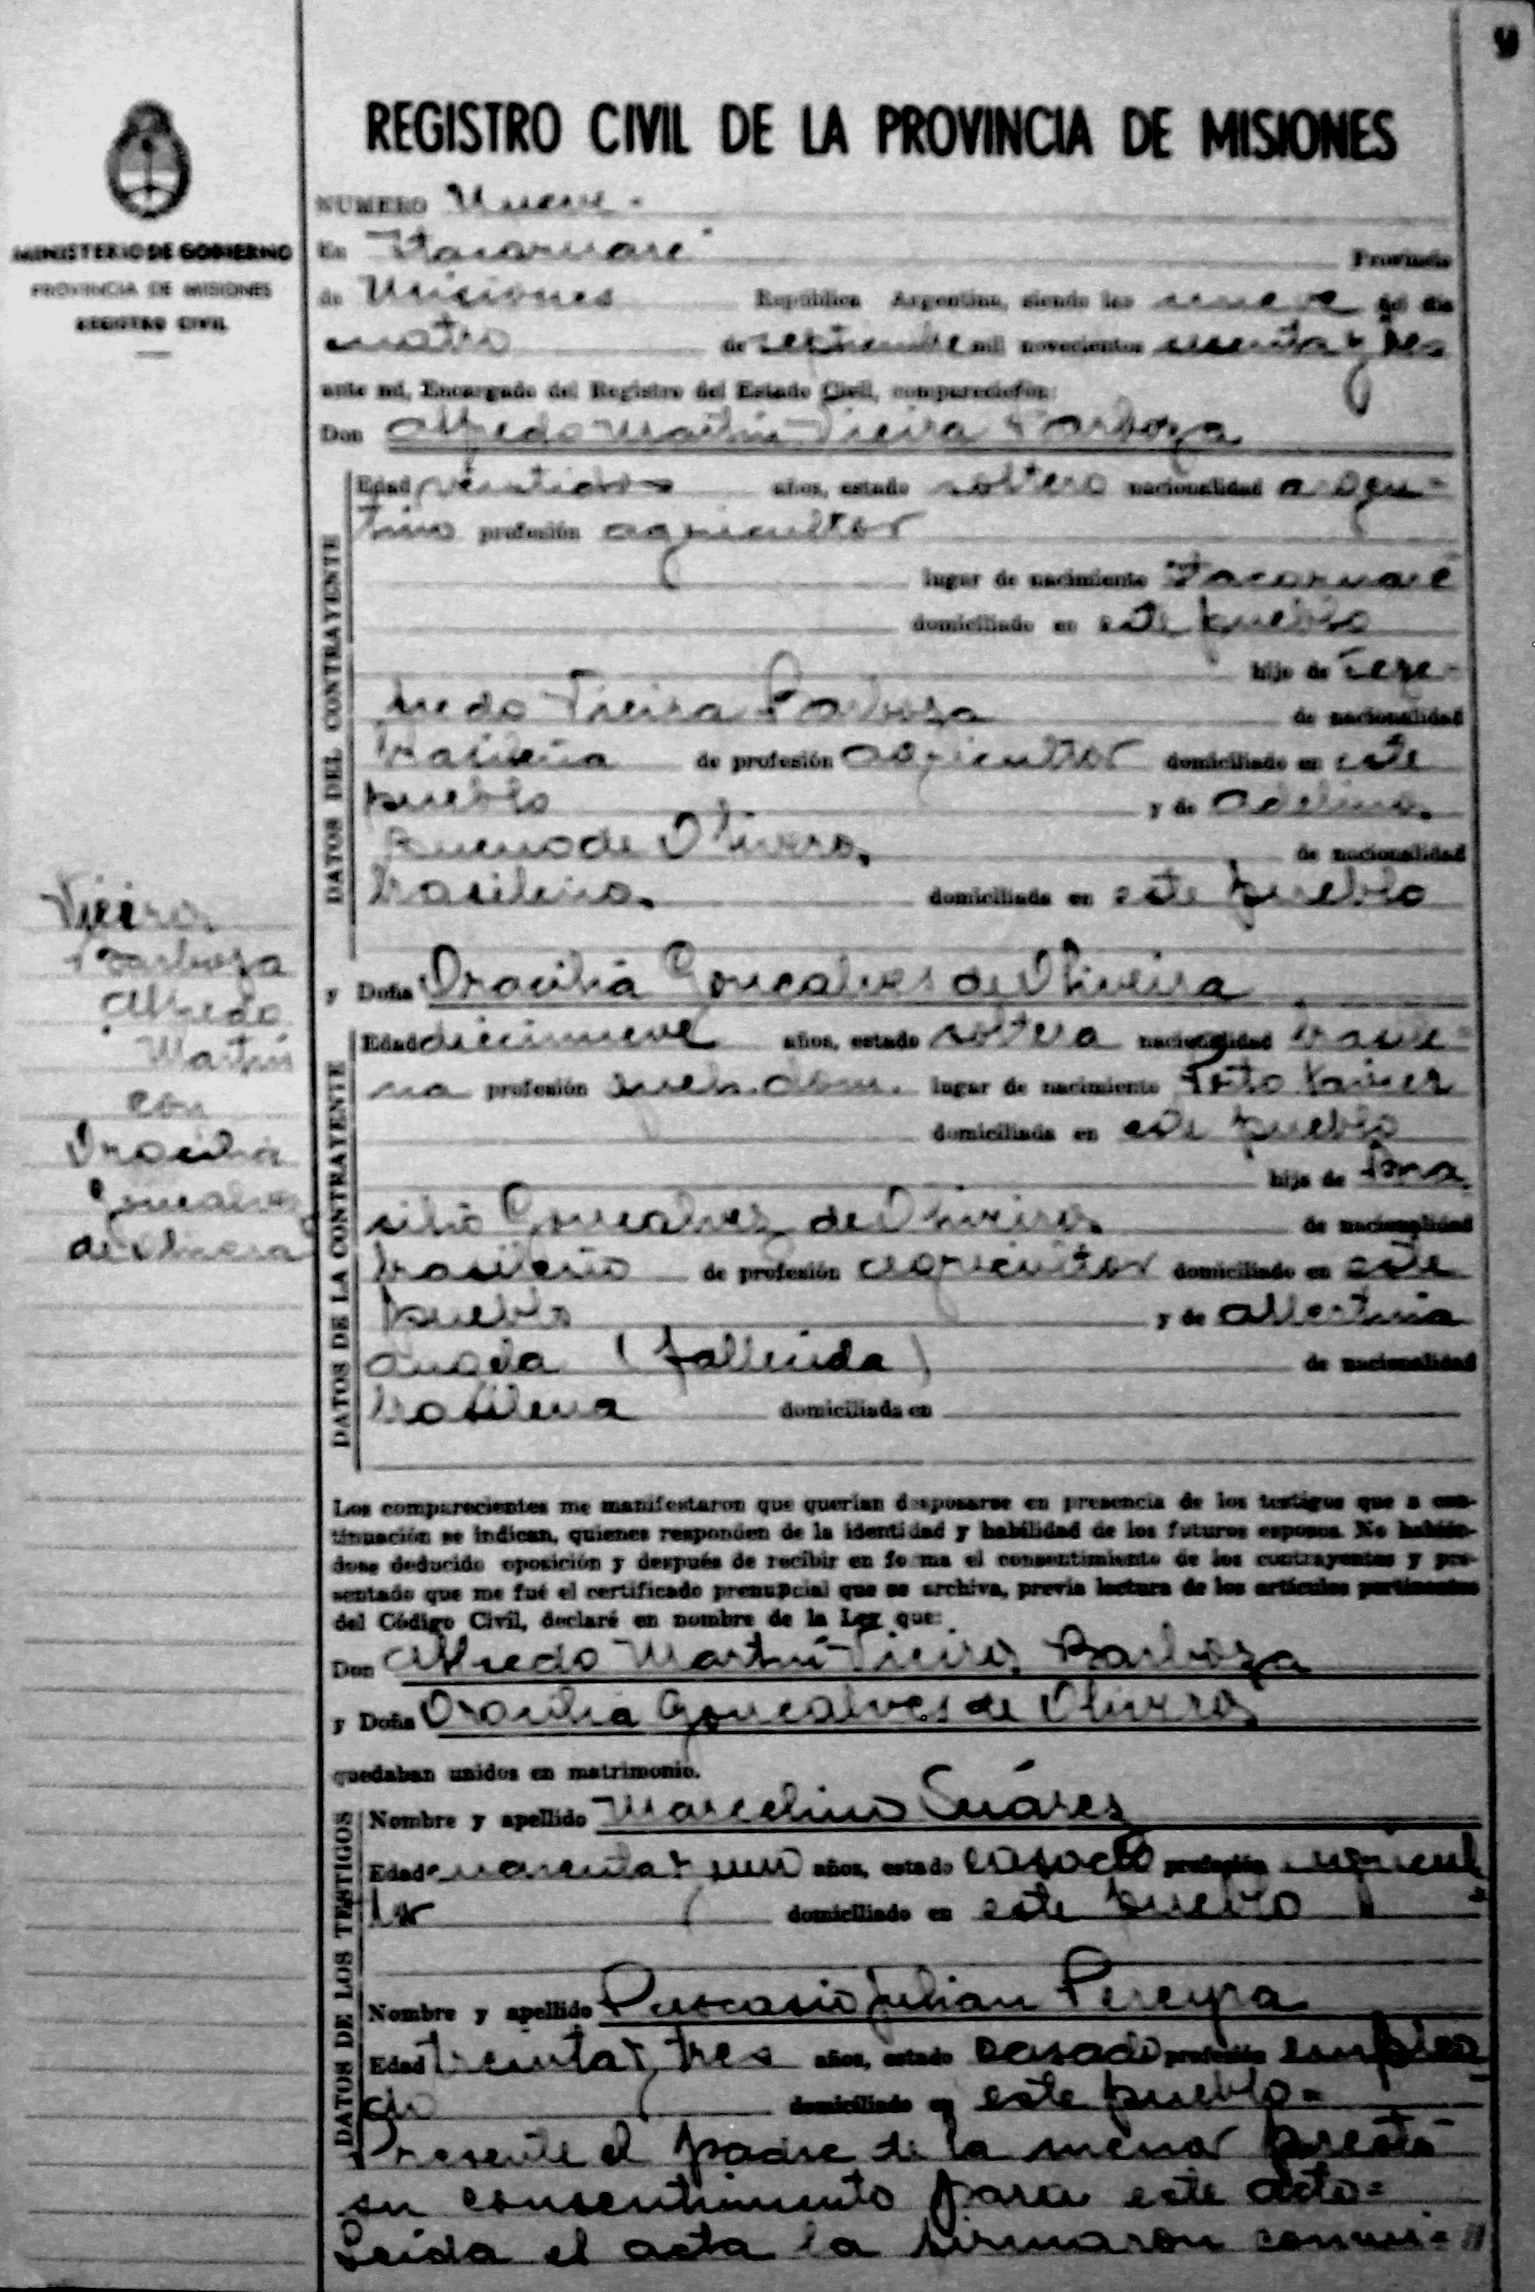 REGISTRO CIVIL DE LA PROVINCIA DE MISIONES
MINISTERIO DE GOBIERNO
PROVINCIA DE MISIONES
REGISTRO CIVIL
NUMERO Nueve.-
En Itacaruaré Provincia
de Misiones República Argentina, siendo las nueve del día
cuatro de septiembre mil novecientos sesenta y tres
ante mí, Encargado del Registro del Estado Civil, comparecieron:
Don Alfredo Martín Vieira Barboza
DATOS DEL CONTRAYENTE
Edad veintidos años, estado soltero nacionalidad argen-
tino profesión agricultor
lugar de nacimiento Itacaruaré
domiciliado en este pueblo
hijo de
Vieira Barboza de nacionalidad
brasileña de profesión agricultor domiciliado en este
pueblo y de Adelina
Bueno de Olivera, de nacionalidad
brasilena. domiciliada en este pueblo
Vieira
Barboza
Alfredo
Martín
con
Oracilia
Goncalves
de Olivera
y Doña Oracilia Goncalves de Oliveira
DATOS DE LA CONTRAYENTE
Edad diecinueve años, estado soltera nacionalidad brasile-
na profesión queh. dom. lugar de nacimiento Porto Xavier
domiciliada en este pueblo
hija de Bra
silio Goncalves de Oliveira de nacionalidad
brasileño de profesión agricultor domiciliado en este
pueblo y de Albertina
(fallecida) de nacionalidad
brasilena domiciliada en
Los comparecientes me manifestaron que querían desposarse en presencia de los testigos que a con-
tinuación se indican, quienes responden de la identidad y habilidad de los futuros esposos. No habién-
dose deducido oposición y después de recibir en forma el consentimiento de los contrayentes y pre-
sentado que me fué el certificado prenupcial que se archiva, previa lectura de los artículos pertinentes
del Código Civil, declaré en nombre de la Ley que:
Don Alfredo Martín Vieira Barboza
y Doña Oracilia Goncalves de Olivera
quedaban unidos en matrimonio.
DATOS DE LOS TESTIGOS
Nombre y apellido Marcelino Suárez
Edad cuarenta y uno años, estado casado profesión agricul
tor domiciliado en este pueblo
Nombre y apellido Pascasio Julian Pereyra
Edad treinta y tres años, estado casado profesión emplea
do domiciliado en este pueblo=
Presente el padre de la menor prestó
su consentimiento para este acto=
Leída el acta la firmaron conmi=